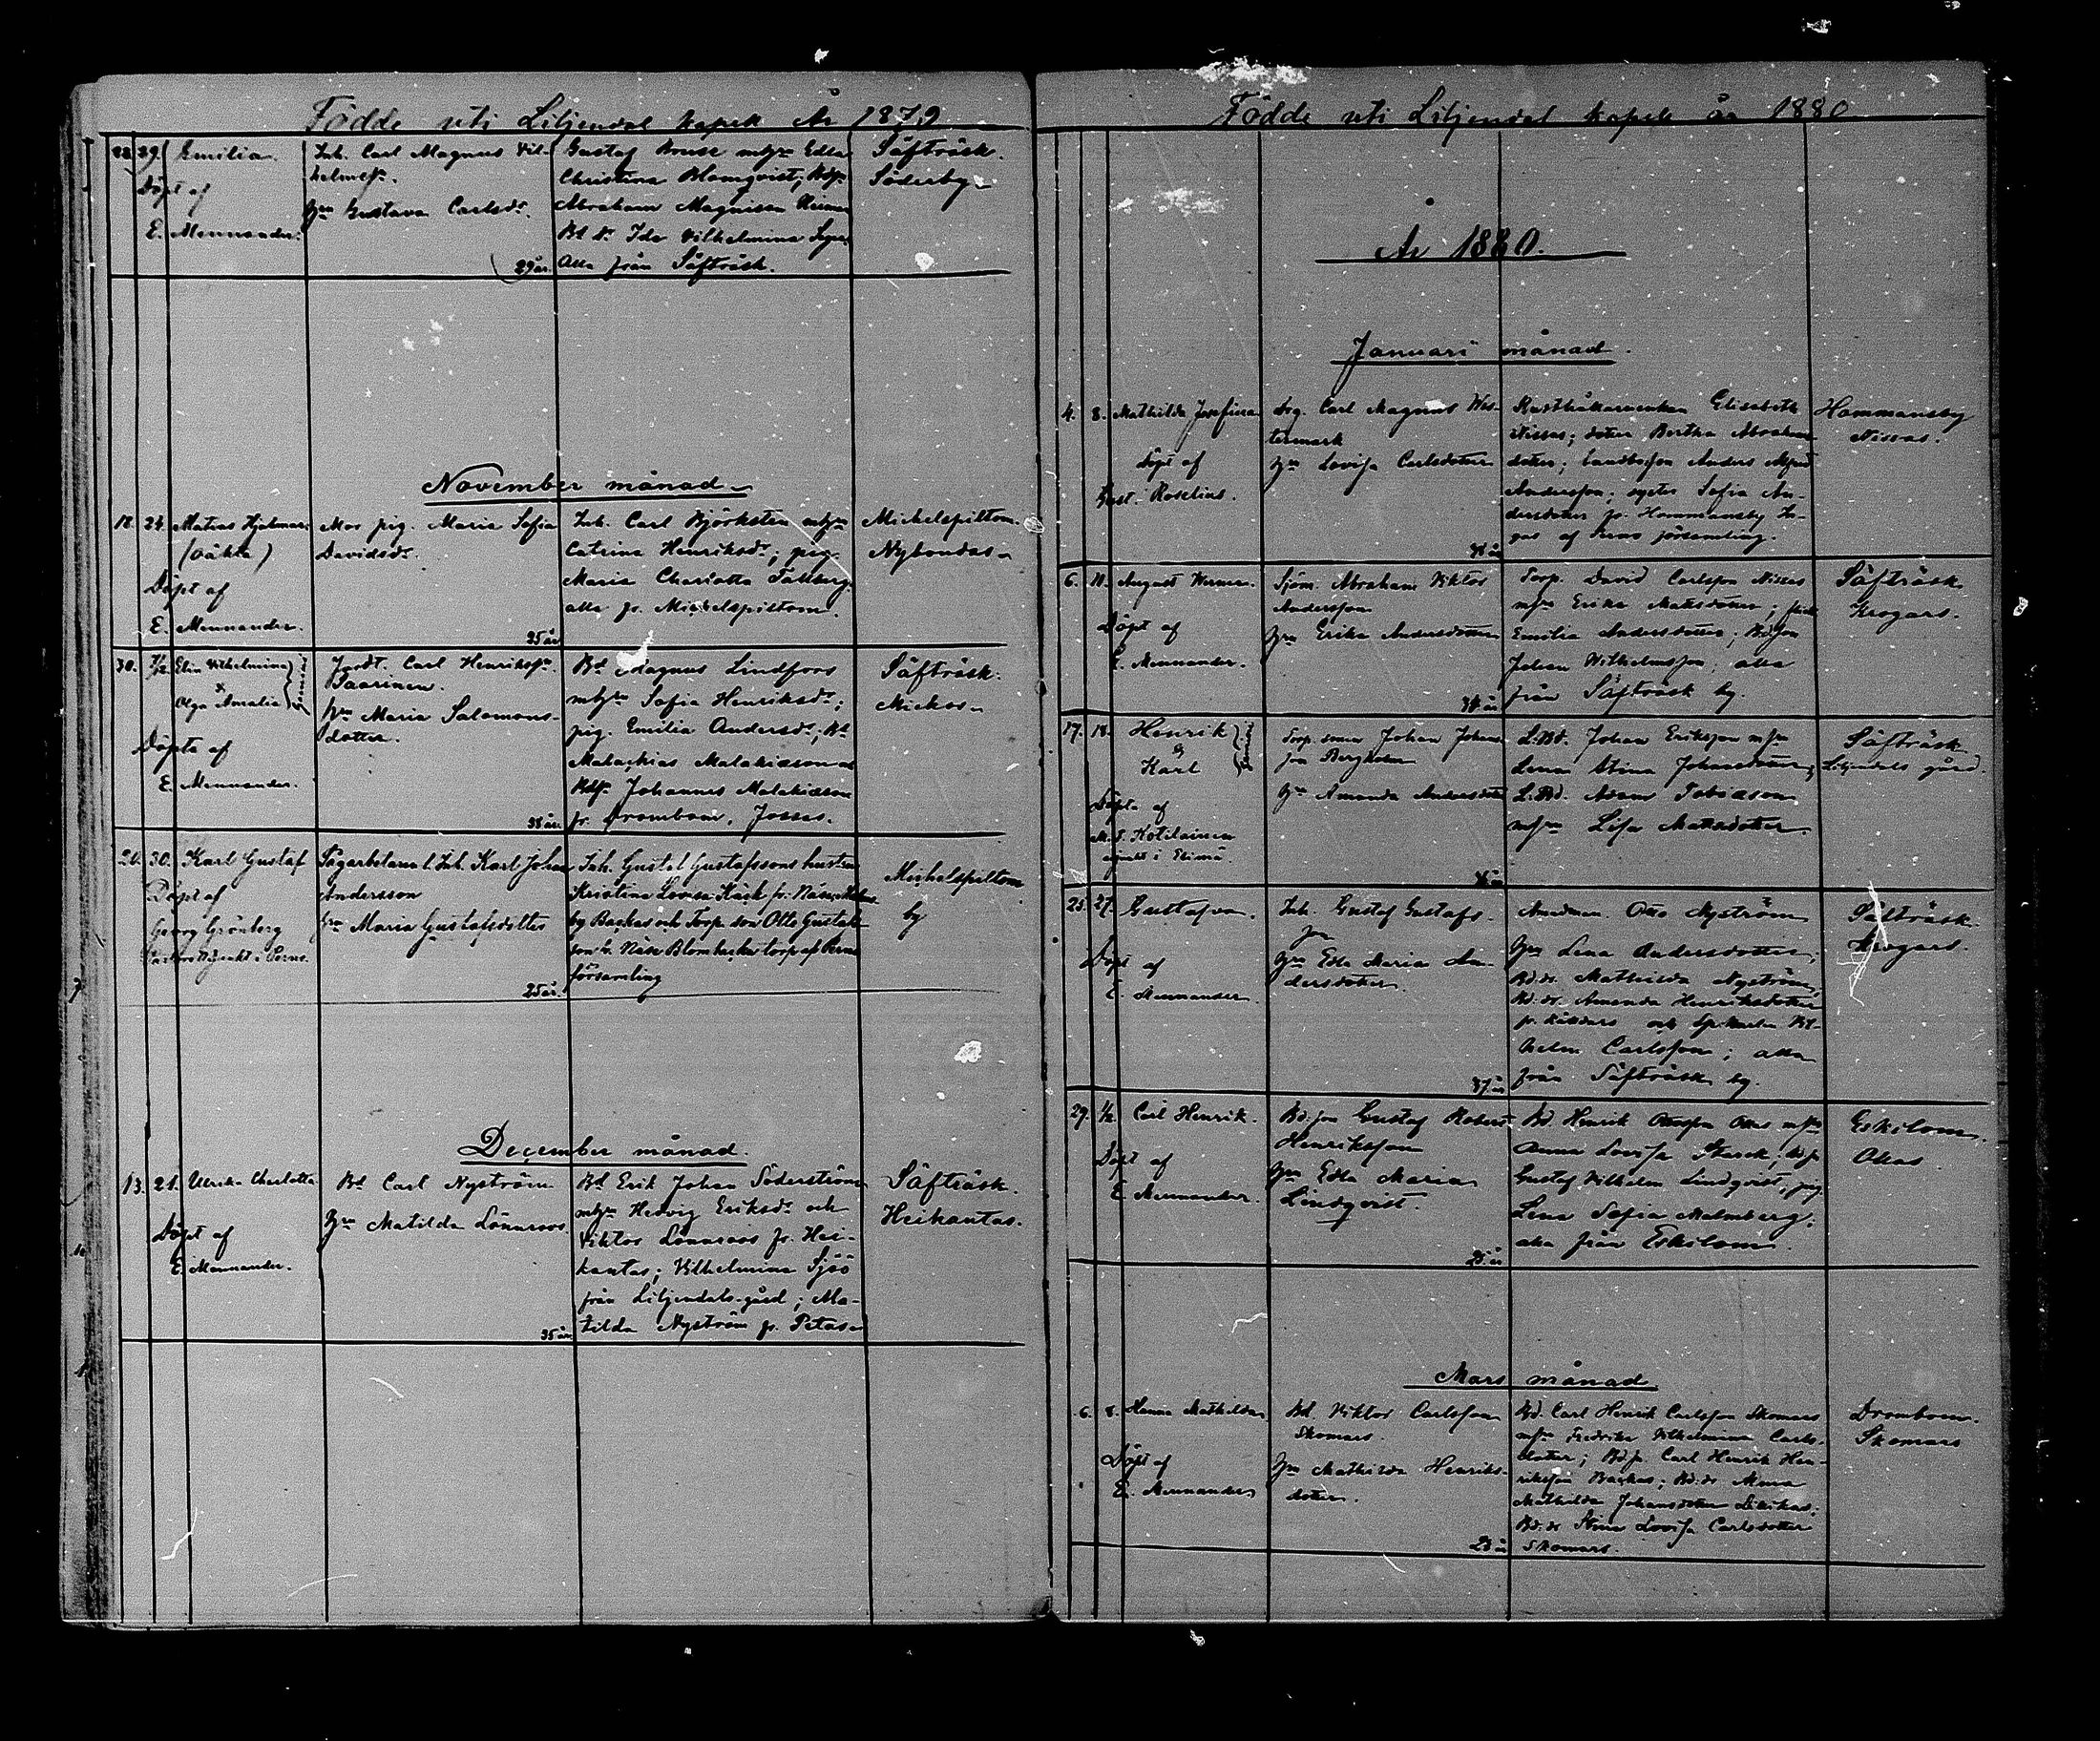 Födde uti Liljendal kapell År 1879
29. Emilia.
Döpt af
E. Mennander.
Inh. Carl Magnus Vil-
helmss.
Hu Gustava Carlsdr.
29 år.
Gustaf Kruse m hu Edla
Christina Blomqvist;
Abraham Magnisson
Ida Vilhelmina
Alla från Säfträsk.
Säfträsk.
Söderby
November månad
18. 24. Matias Hjalmar
(oäkta)
Döpt af
E. Mennander.
Mor pig. Maria Sofia
Davidsdr.
25 år
Inh. Carl Björksten m hu
Catrina Henriksdr; pig.
Maria Charlotta Tallberg
alla fr. Michelspiltom.
Michelspiltom.
Nybondas
30. Elin Vilhelmina
Olga Amalia
Döpta af
E. Mennander.
Carl Henrikss.
Saarinen.
Hu Maria Salomons-
dotter.
38 år.
Bd Magnus Lindfors
m hu Sofia Henriksdr;
pig. Emilia Andersdr; Bd
Malachias Malakiasson
Johannes Malakiasson
fr. Drombom, Josses.
Säfträsk.
Mickos
20. 30. Karl Gustaf
Döpt af
Georg Grönberg
Sågarbetaren l. Inh. Karl Johan
Andersson
Hu Maria Gustafsdotter
25 år.
Inh. Gustaf Gustafssons hustru
Kristina Lovisa Käck fr. Näse
by Backas och Torp. son Otto Gustafs-
son fr. Näse Blombacka torp af Perno
församling
Michelspiltom
by
December månad.
13. 21. Ulrika Charlotta
Döpt af
E. Mennander.
Bd Carl Nyström
Hu Matilda Lönnroos
35 år.
Bd Erik Johan Söderström
m hu Hedvig Eriksdr och
Viktor Lönnroos fr. Hei-
kantas; Vilhelmina Sjöö
från Liljendals-gård; Ma-
tilda Nyström fr. Petas
Säfträsk.
Heikantas.
Födde uti Liljendal kapell år 1880
År 1880.
Januari månad.
4. 8. Mathilda Josefina
Döpt af
Gust. Roselius.
Drg. Carl Magnus Wes-
termark
Hu Lovisa Carlsdotter
Rusthållarenkan Elisabeth
Nissas; dotter Bertha Abrahams-
dotter; Landbosson Anders Alfred
Andersson; syster Sofia An-
dersdotter fr. Hommansby
af Perno församling.
Hommansby
Nissas.
6. 11. August Werner.
Döpt af
E. Mennander.
Sjöm. Abraham Viktor
Andersson
Hu Erika Andersdotter
Torp. David Carlsson Nissas
m hu Erika Matsdotter;
Emilia Andersdotter; Bd son
Johan Wilhelmsson, alla
från Säfträsk by.
Säfträsk
Krogars.
17. 18. Henrik
&
Karl
Döpta af
Kotilainen
adjunkt i Elimä.
Torp. sonen Johan Johans-
son Bergholm
Hu Amanda Andersdotter
L.Bd. Johan Eriksson m hu
Lena Stina Johansdotter;
L.Bd. Adam Tobiasson
m hu Lisa Mattsdotter.
Säfträsk
Liljendals gård.
25. 27. Gustafva.
Döpt af
E. Mennander.
Inh. Gustaf Gustafs-
son
Hu Edla Maria An-
dersdotter.
37 år
Otto Nyström
Hu Lena Andersdotter;
Bd. dr. Mathilda Nyström,
Bd. dr. Amanda Henriksdotter
och Vil-
helm Carlsson; alla
från Säfträsk by.
Säfträsk.
Krogars.
29. Carl Henrik.
Döpt af
E. Mennander.
Bd. son Gustaf Robert
Henriksson
Hu Edla Maria
Lindqvist.
25 år
Bd. Henrik Ollas m hu
Anna Lovisa
Gustaf Vilhelm Lindqvist, pig.
Lena Sofia Malmberg;
alla från Eskilom.
Eskilom.
Ollas.
Mars månad
6. 8. Hanna Mathilda
Döpt af
E. Mennander
Bd. Viktor Carlsson
Skomars.
Hu Mathilda Henriks-
dotter.
23 år
Bd. Carl Henrik Carlsson Skomars
m hu Fredrika Vilhelmina Carls-
dotter; Bd. s. Carl Henrik Hen-
riksson Backas; Bd. dr Anna
Mathilda Johansdotter
Bd. dr Stina Lovisa Carlsdotter
Skomars.
Drombom.
Skomars